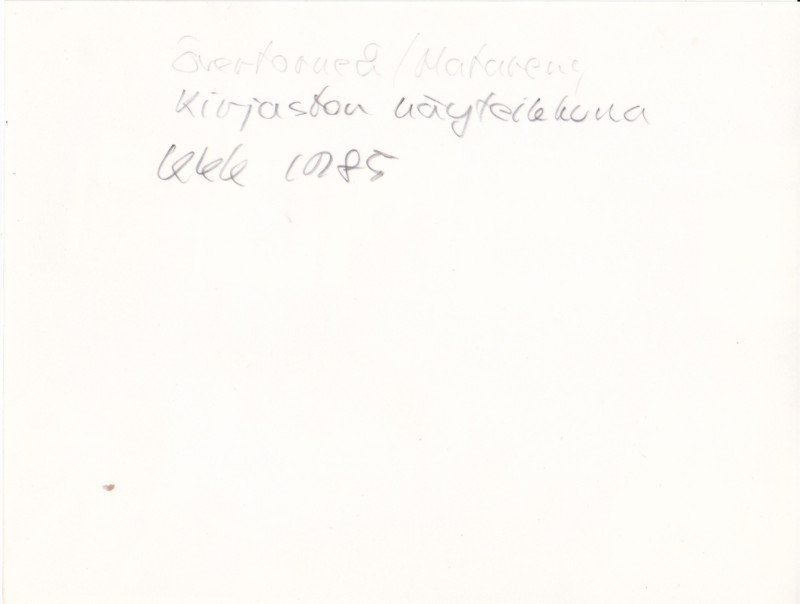 Övertorneå / Matareng
Kirjaston näyteikkuna
kkk 1985